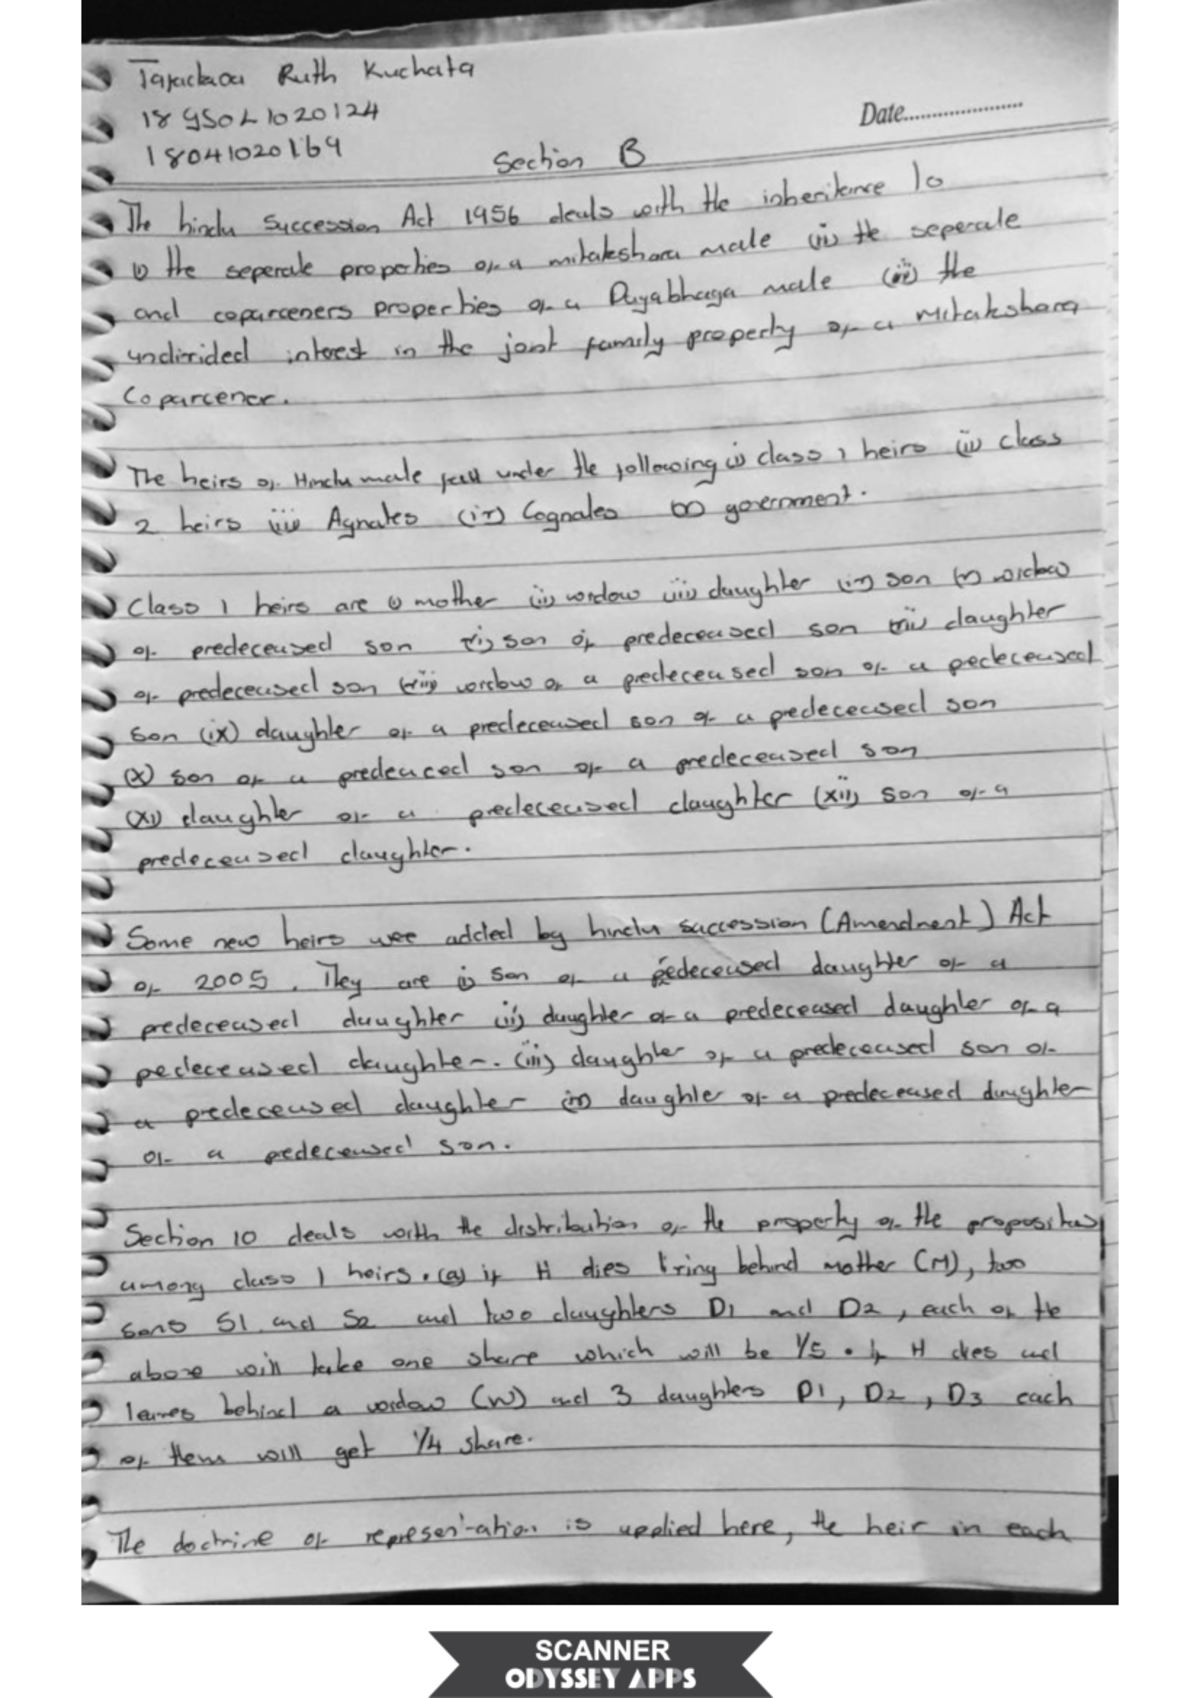 Ruth Kuchata
18 GSOL1020124
18041020169
Date
Section B
The hindu Succession Act 1956 deals with the inheritance to
(i) the seperate properties of a mitakshara male (ii) the seperate
and coparceners properties of a Dayabhaga male (iii) the
undivided interest in the joint family property of a Mitakshara
Coparcener.
The heirs of Hindu male fall under the following (i) class 1 heirs (ii) class
2 heirs (iii) Agnates (iv) Cognates (v) government.
Class 1 heirs are (i) mother (ii) widow (iii) daughter (iv) son (v) widow
of predeceased son (vi) son of predeceased son (vii) daughter
of predeceased son (viii) widow of a predeceased son of a pedeceased
son (ix) daughter of a predeceased son of a pedeceased son
(x) son of a predeaced son of a predeceased son
(xi) daughter of a predeceased daughter (xii) son of a
predeceased daughter.
Some new heirs wee added by hindu succession (Amendment) Act
of 2005. They are (i) son of a pedeceased daughter of a
predeceased daughter (ii) daughter of a predeceased daughter of a
pedeceased daughter. (iii) daughter of a predeceased son of
a predeceased daughter (iv) daughter of a predeceased daughter
of a pedeceased son.
Section 10 deals with the distribution of the property of the propositus
among class 1 heirs. (a) if H dies living behind mother (M), two
sons S1 and S2 and two daughters D1 and D2, each of the
above will take one share which will be 1/5. If H dies and
leaves behind a widow (W) and 3 daughters D1, D2, D3 each
of them will get 1/4 share.
The doctrine of representation is applied here, the heir in each
SCANNER
ODYSSEY APPS